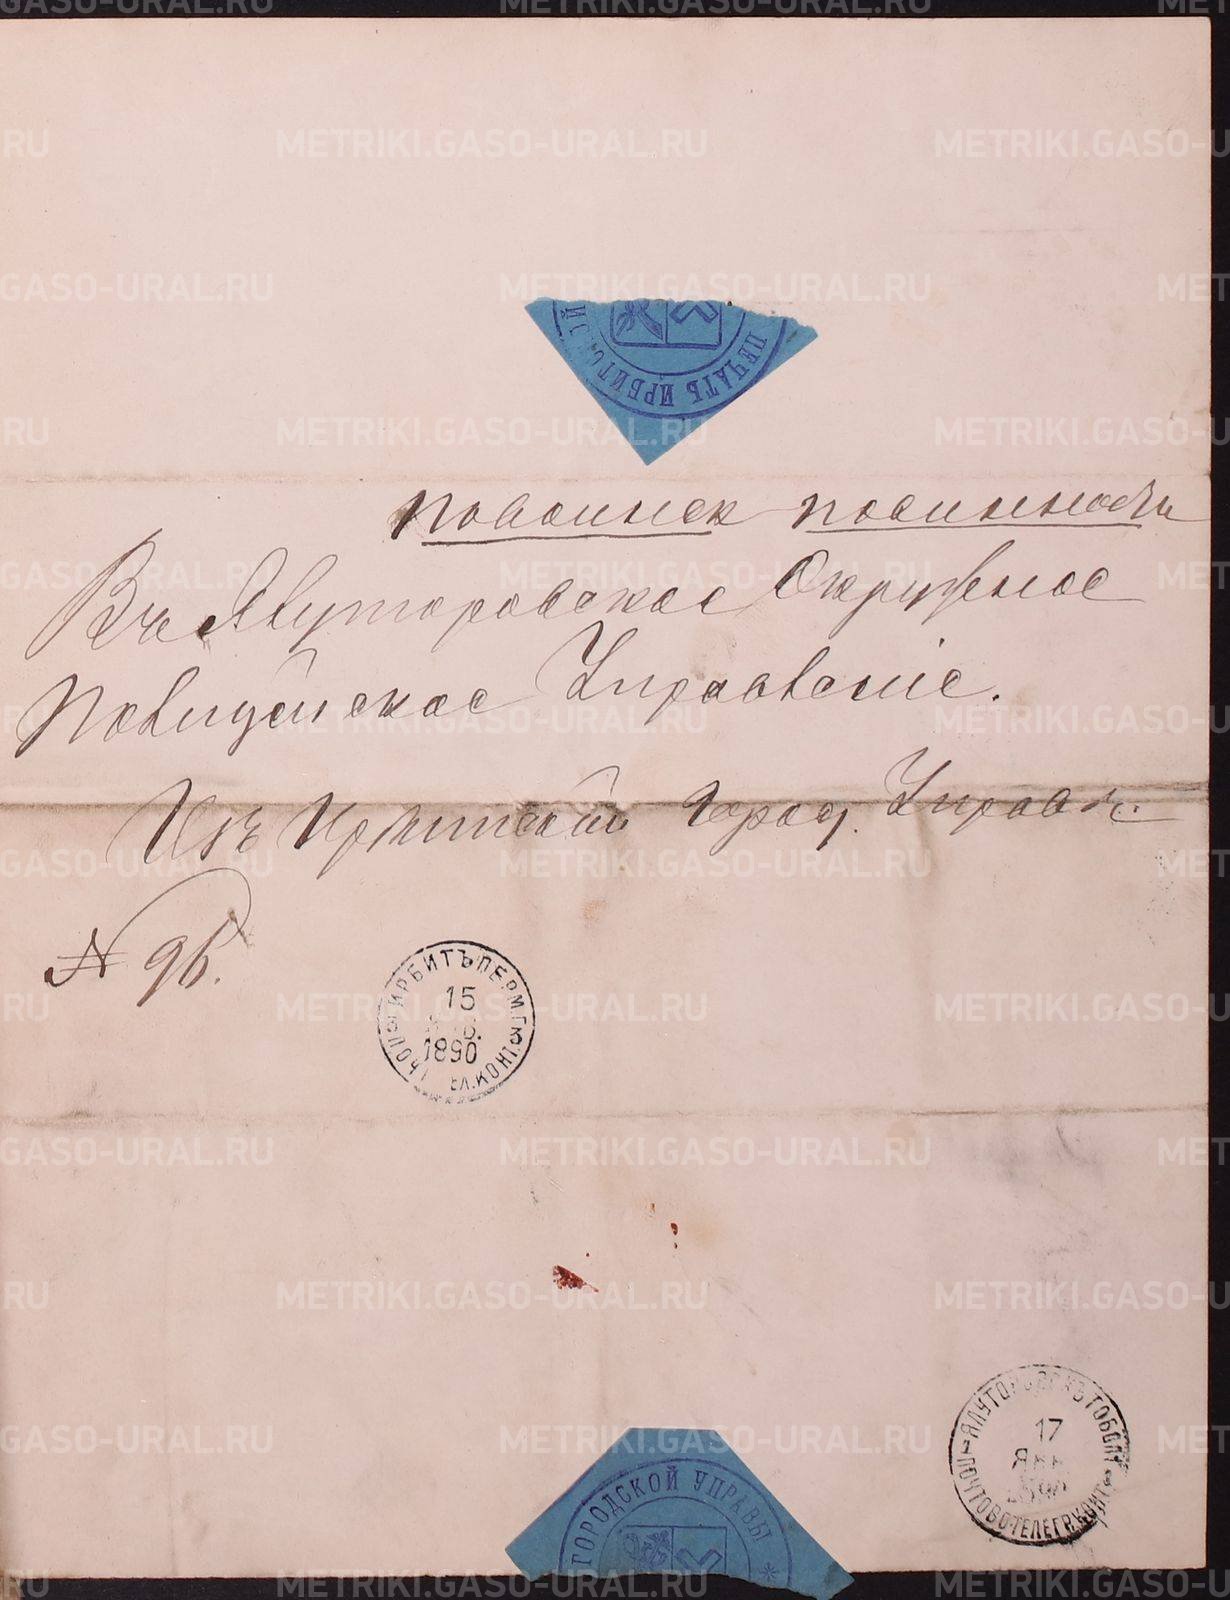 ПЕЧАТЬ ИРБИТСКОЙ
По воинск повинности
Въ Ялуторовское Окружное
Полицейское Управленіе.
Изъ Ирбитской Город. Управы.
№ 96.
ИРБИТЪ ПЕРМ. Г.
15
1890
ЯЛУТОРОВСКЪ ТОБОЛ. Г.
17
ЯНВ
1890
ПОЧТОВО-ТЕЛЕГР. КОНТ.
ГОРОДСКОЙ УПРАВЫ *
METRIKI.GASO-URAL.RU